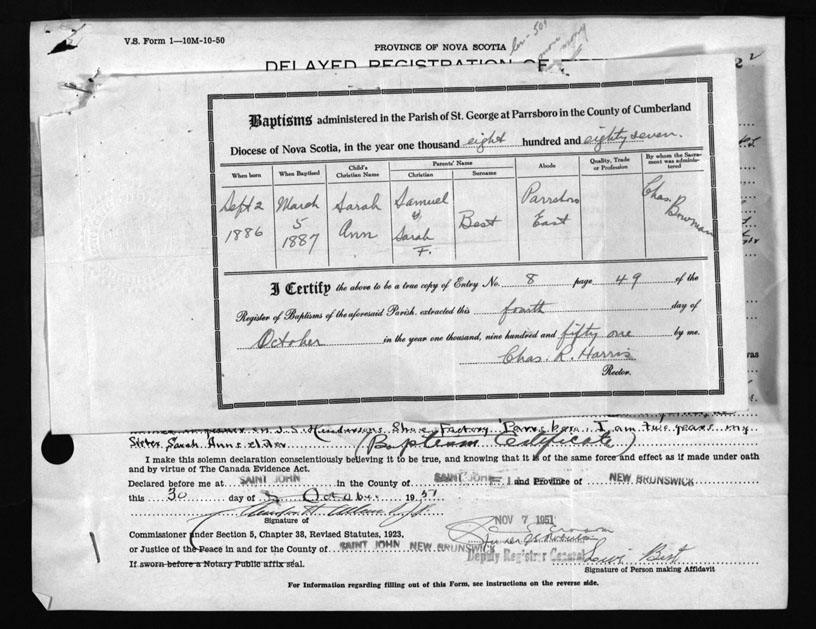 V.S. Form 1—10M-10-50
PROVINCE OF NOVA SCOTIA
DELAYED REGISTRATION OF
Baptisms administered in the Parish of St. George at Parrsboro in the County of Cumberland
Diocese of Nova Scotia, in the year one thousand eight hundred and eighty seven.
When born When Baptised Child's Christian Name Parents' Name Christian Surname Abode Quality, Trade or Profession By whom the Sacrament was administered
Sept 2 1886 March 5 1887 Sarah Ann Samuel & Sarah F. Best Parrsboro East Chas. Bowman
I Certify the above to be a true copy of Entry No. 8 page 49 of the
Register of Baptisms of the aforesaid Parish, extracted this fourth day of
October in the year one thousand, nine hundred and fifty one by me.
Chas. R. Harris
Rector.
in J. S. Hendersons Shoe Factory Parrsboro. I am two years my
Sister Sarah Anns elder (Baptism Certificate)
I make this solemn declaration conscientiously believing it to be true, and knowing that it is of the same force and effect as if made under oath
and by virtue of The Canada Evidence Act.
Declared before me at SAINT JOHN in the County of SAINT JOHN and Province of NEW BRUNSWICK
this 30 day of October 1951
Signature of
NOV 7 1951
Commissioner under Section 5, Chapter 38, Revised Statutes, 1923,
or Justice of the Peace in and for the County of SAINT JOHN NEW BRUNSWICK
Deputy Registrar General
If sworn before a Notary Public affix seal.
Best
Signature of Person making Affidavit
For Information regarding filling out of this Form, see instructions on the reverse side.